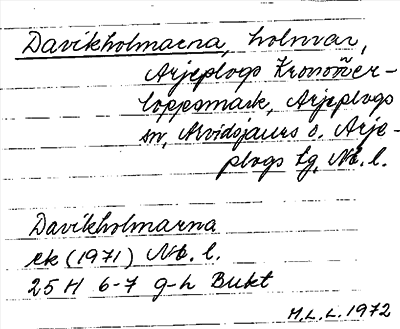 Davikholmarna, holmar,
Arjeplogs Kronoöver-
loppsmark, Arjeplogs
sn, Arvidsjaurs o. Arje-
plogs tg, Nb. l.
Davikholmarna
ek (1971) Nb. l.
25 H 6-7 g-h Bukt
M.L.L. 1972